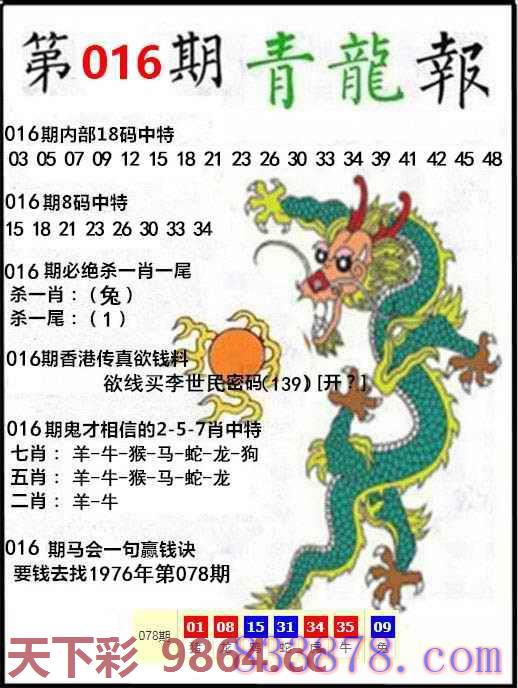 第016期青龍報
016期内部18码中特
03 05 07 09 12 15 18 21 23 26 30 33 34 39 41 42 45 48
016期8码中特
15 18 21 23 26 30 33 34
016期必绝杀一肖一尾
杀一肖：(兔)
杀一尾：(1)
016期香港传真欲钱料
欲线买李世民密码(139)[开?]
016期鬼才相信的2-5-7肖中特
七肖：羊-牛-猴-马-蛇-龙-狗
五肖：羊-牛-猴-马-蛇-龙
二肖：羊-牛
016 期马会一句赢钱诀
要钱去找1976年第078期
078期 01 08 15 31 34 35 09
猪 龙 蛇 虎 牛 兔
天下彩 9864.cc